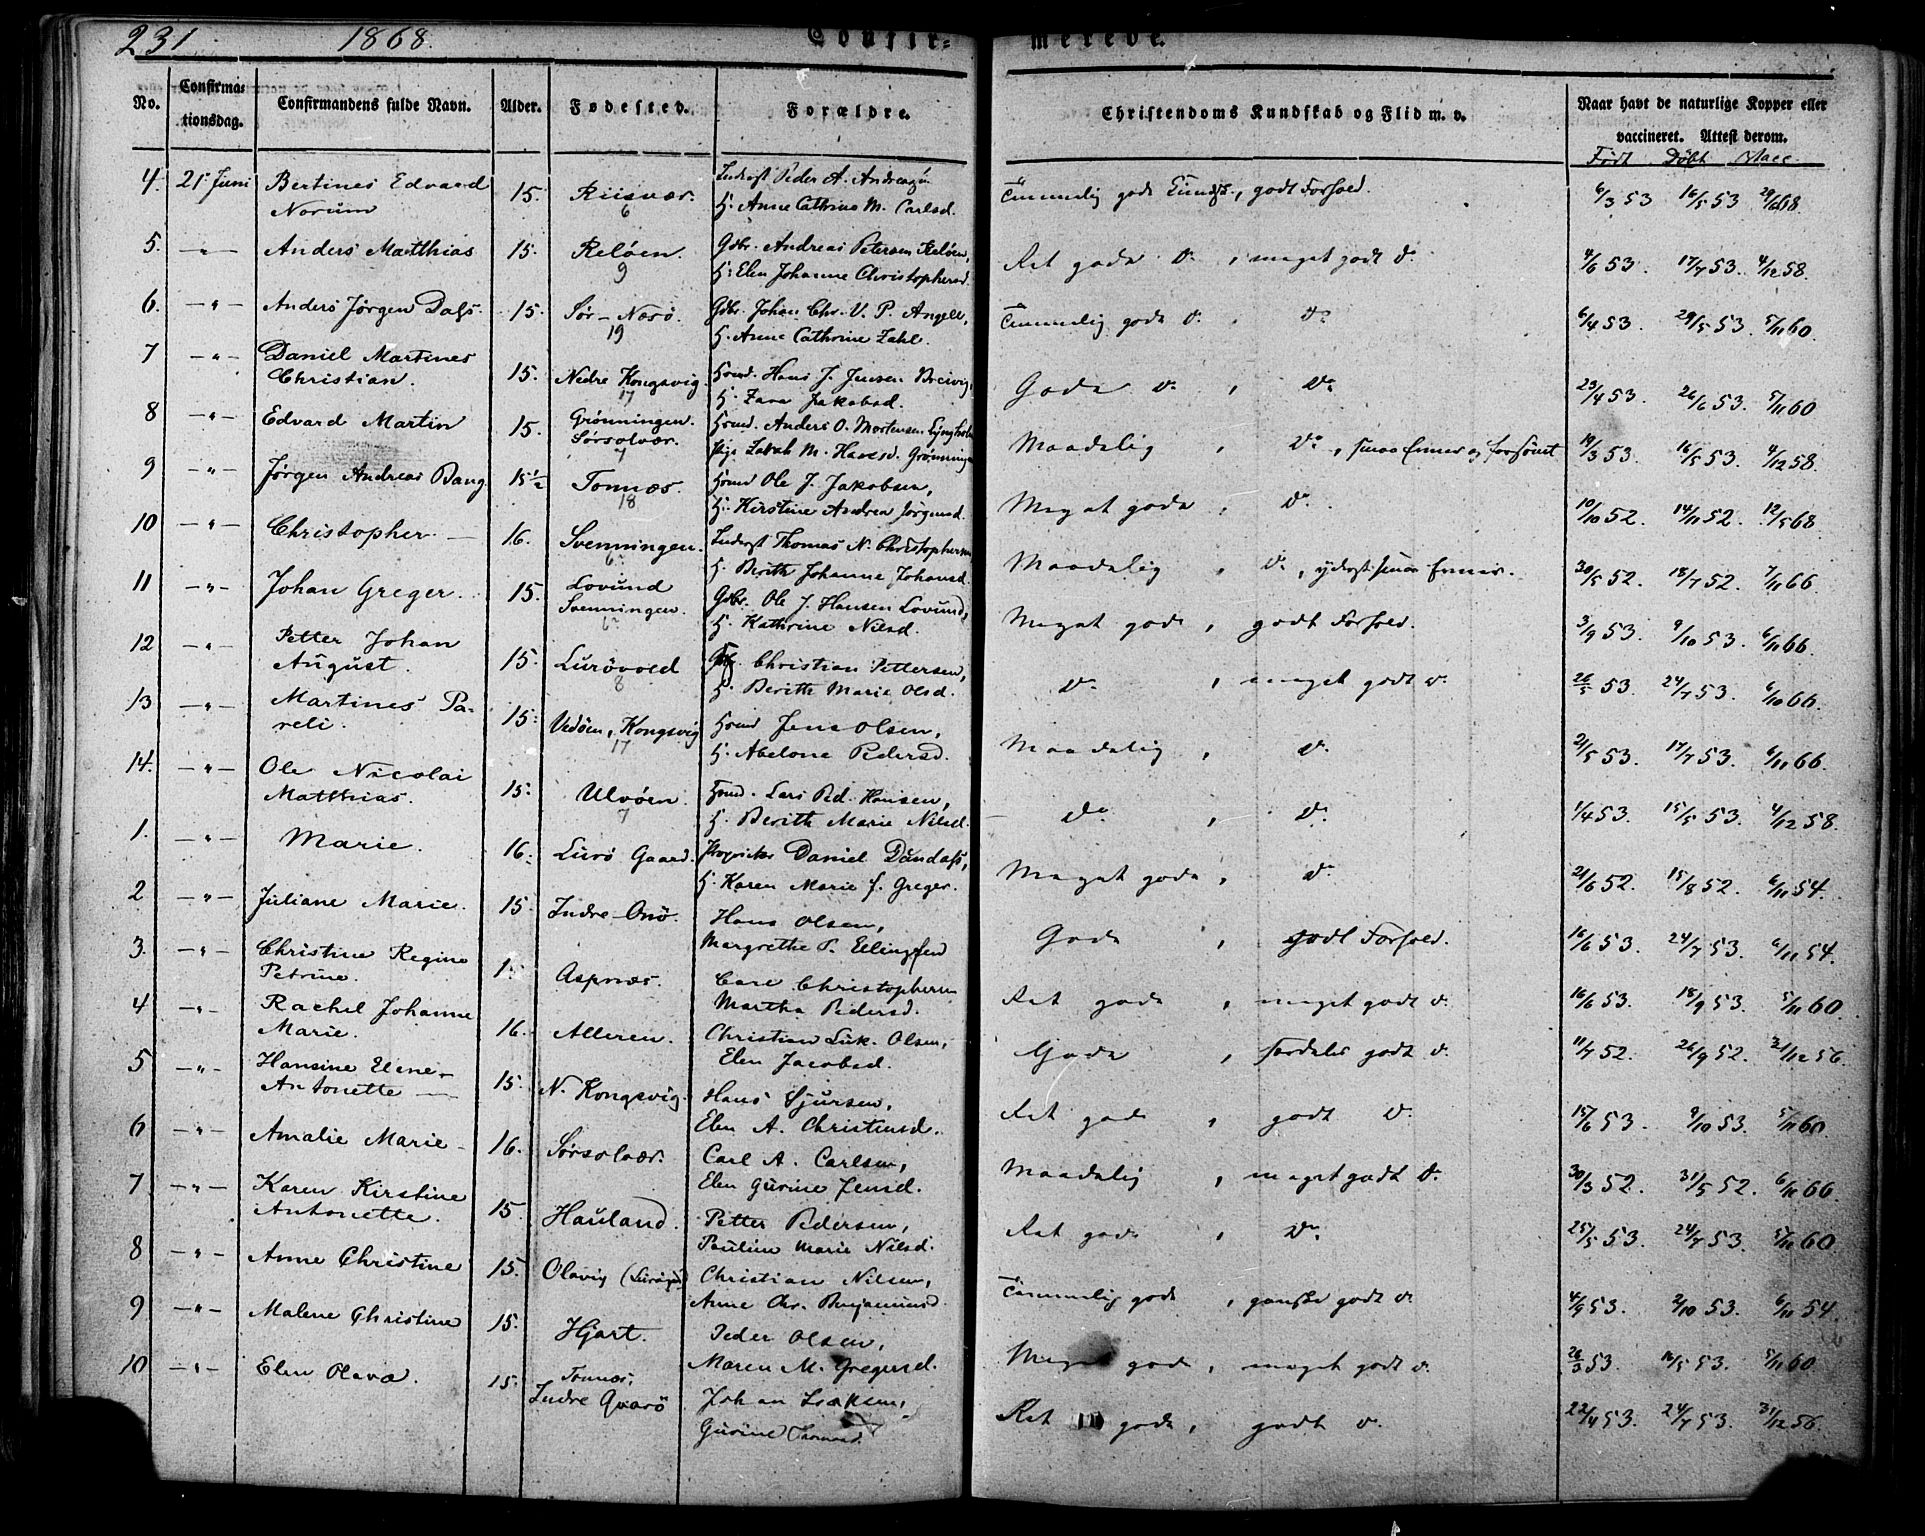 231 1868. Confir= merede.
No. Confirma= tionsdag. Confirmandens fulde Navn. Alder. Fødested. Forældre. Christendoms Kundskab og Flid m. v. Naar havt de naturlige Kopper eller vaccineret. Attest derom.
Født Døbt Vacc.
4. 21de Juni Bertines Edvard 15. Riisvær. Inderst Peder A. Andreas Temmelig gode Kundsk., godt Forhold. 6/3 53 16/5 53 29/6 68.
Norum 6 H. Anne Cathrine M. Carlsd.
5. -"- Anders Matthias 15. Reløen. Gdbr. Andreas Petersen Reløen, Ret gode D. , meget godt D. 4/6 53. 17/7 53. 4/12 58.
9 H. Elen Johanne Christophersd.
6. -"- Anders Jørgen Dass. 15. Sør-Næsø. Gdbr. Johan Chr. V. P. Angell, Temmelig gode D. , Do 6/4 53. 29/5 53. 5/11 60.
19 H. Anne Cathrine Zahl.
7 -"- Daniel Martines
Christian. 15. Nedre Kongsvig. Hsmd. Hans J. Jensen Breivig, Gode D. , Do 23/4 53. 26/6 53. 5/11 60
17 H. Zara Jakobsd.
8 -"- Edvard Martin 15. Grønningen. Hsmd. Anders O. Mortensen Lyngholm Maadelig , Do, smaa Evner og forsømt 19/3 53. 16/5 53. 4/12 58.
Sørsolvær. 7 Pige Zakab M. Hansd. Grønningen
9 -"- Jørgen Andreas Bang 15½ Tonnes. Hsmd Ole J. Jakobsen, Meget gode , Do. 10/10 52. 14/11 52. 12/5 68.
18 H. Kirstine Andrea Jørgensd.
10 -"- Christopher. 16. Svenningen. Inderst Thomas N. Christophersen Maadelig , Do, yderst smaa Evner. 30/5 52. 18/7 52. 7/11 66.
6 H. Berith Johanne Johansd.
11 -"- Johan Greger. 15. Lovund Gdbr. Ole J. Hansen Lovund, Meget gode , godt Forhold. 3/9 53. 9/10 53. 6/11 66.
Svenningen. 6 H. Kathrine Nilsd.
12 -"- Petter Johan
August. 15. Lurøvold Christian Pettersen, Do. , meget godt D. 26/5 53. 24/7 53. 6/10 66.
8 H. Berith Marie Olsd.
13 -"- Martines Pa-
reli. 15. Vedøen, Kongsvig Hsmd Jens Olsen, Maadelig , Do. 21/5 53. 17/7 53. 6/11 66.
17 H. Abelone Pedersd.
14. -"- Ole Nicolai
Matthias. 15. Ulvøen. Hsmd. Lars Ped. Hansen, Do. , Do. 1/4 53. 15/5 53. 4/12 58.
7 H. Berith Marie Nilsd.
1. -"- Marie. 16. Lurø Gaard. Proprietær Daniel Dundass, Meget gode , Do. 21/6 52. 15/8 52. 6/11 54.
H. Karen Marie f. Greger.
2 -"- Juliane Marie. 15. Indre-Onø. Hans Olsen, Gode , godt Forhold. 16/6 53. 24/7 53. 6/11 54.
Margrethe P. Ellingsen
3. -"- Christine Regine
Petrine. 15 Aspnæs. Carl Christophersen Ret gode , meget godt D. 16/6 53. 18/9 53. 5/11 60.
Martha Pedersd.
4 -"- Rachel Johanne
Marie. 16. Alleren. Christian Luk. Olsen, Gode , særdeles godt D. 11/7 52. 26/9 52. 31/12 56.
Elen Jacobsd.
5 -"- Hansine Elene
Antonette 15. N. Kongsvig. Hans Sjursen, Ret gode , godt D. 15/6 53. 9/10 53. 5/11 60.
Elen A. Christensd.
6 -"- Amalie Marie 16. Sørsolvær. Carl A. Carlsen, Maadelig , meget godt D. 30/3 52. 31/5 52. 6/11 66.
Elen Gurine Jensd.
7 -"- Karen Kirstine
Antonette. 15. Hauland. Petter Pedersen, Ret gode , Do 25/5 53. 24/7 53. 5/11 60.
Pauline Marie Nilsd.
8 -"- Anne Christine 15. Olavig Christian Nilsen, Temmelig gode , ganske godt D 4/9 53. 2/10 53. 6/11 54.
Anne Chr. Benjaminsd.
9 -"- Malene Christine 15. Hjart. Peder Olsen, Meget gode , meget godt D. 26/3 53. 16/5 53. 5/11 60.
Maren M. Gregersd.
10 -"- Elen Olava. 15. Tonnes, Johan Isaksen, Ret gode , godt D. 22/4 53. 24/7 53. 31/12 56.
Indre Qvarø Gurine Thomasd.